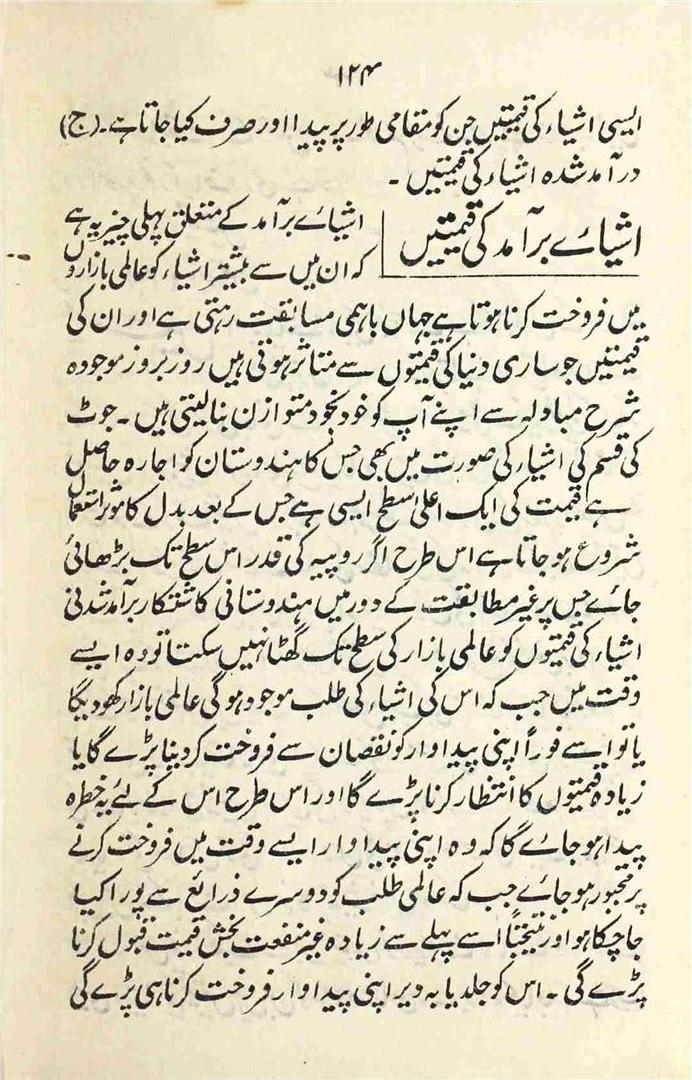 ۱۲۴
ایسی اشیاء کی قیمتیں جن کو مقامی طور پر پیدا اور صرف کیا جاتا ہے۔ (ج)
درآمد شدہ اشیاء کی قیمتیں ۔
اشیائے برآمد کی قیمتیں
اشیائے برآمد کے متعلق پہلی چیز یہ ہے
کہ ان میں سے بیشتر اشیاء کو عالمی بازاروں
میں فروخت کرنا ہوتا ہے جہاں باہمی مسابقت رہتی ہے اور ان کی
قیمتیں جو ساری دنیا کی قیمتوں سے متاثر ہوتی ہیں روز بروز موجودہ
شرح مبادلہ سے اپنے آپ کو خود بخود متوازن بنا لیتی ہیں ۔ جوٹ
کی قسم کی اشیاء کی صورت میں بھی جس کا ہندوستان کو اجارہ حاصل
ہے قیمت کی ایک اعلیٰ سطح ایسی ہے جس کے بعد بدل کا موثر استعمال
شروع ہو جاتا ہے اس طرح اگر روپیہ کی قدر اس سطح تک بڑھائی
جائے جس پر غیر مطابقت کے دور میں ہندوستانی کاشتکار برآمد شدنی
اشیاء کی قیمتوں کو عالمی بازار کی سطح تک گھٹا نہیں سکتا تو وہ ایسے
وقت میں جب کہ اس کی اشیاء کی طلب موجود ہوگی عالمی بازار کھو دیگا
یا تو اسے فوراً اپنی پیداوار کو نقصان سے فروخت کر دینا پڑے گا یا
زیادہ قیمتوں کا انتظار کرنا پڑے گا اور اس طرح اس کے لئے یہ خطرہ
پیدا ہو جائے گا کہ وہ اپنی پیداوار ایسے وقت میں فروخت کرنے
پر مجبور ہو جائے جب کہ عالمی طلب کو دوسرے ذرائع سے پورا کیا
جا چکا ہو اور نتیجتاً اسے پہلے سے زیادہ غیر منفعت بخش قیمت قبول کرنا
پڑے گی ۔ اس کو جلد یا بہ دیر اپنی پیداوار فروخت کرنا ہی پڑے گی